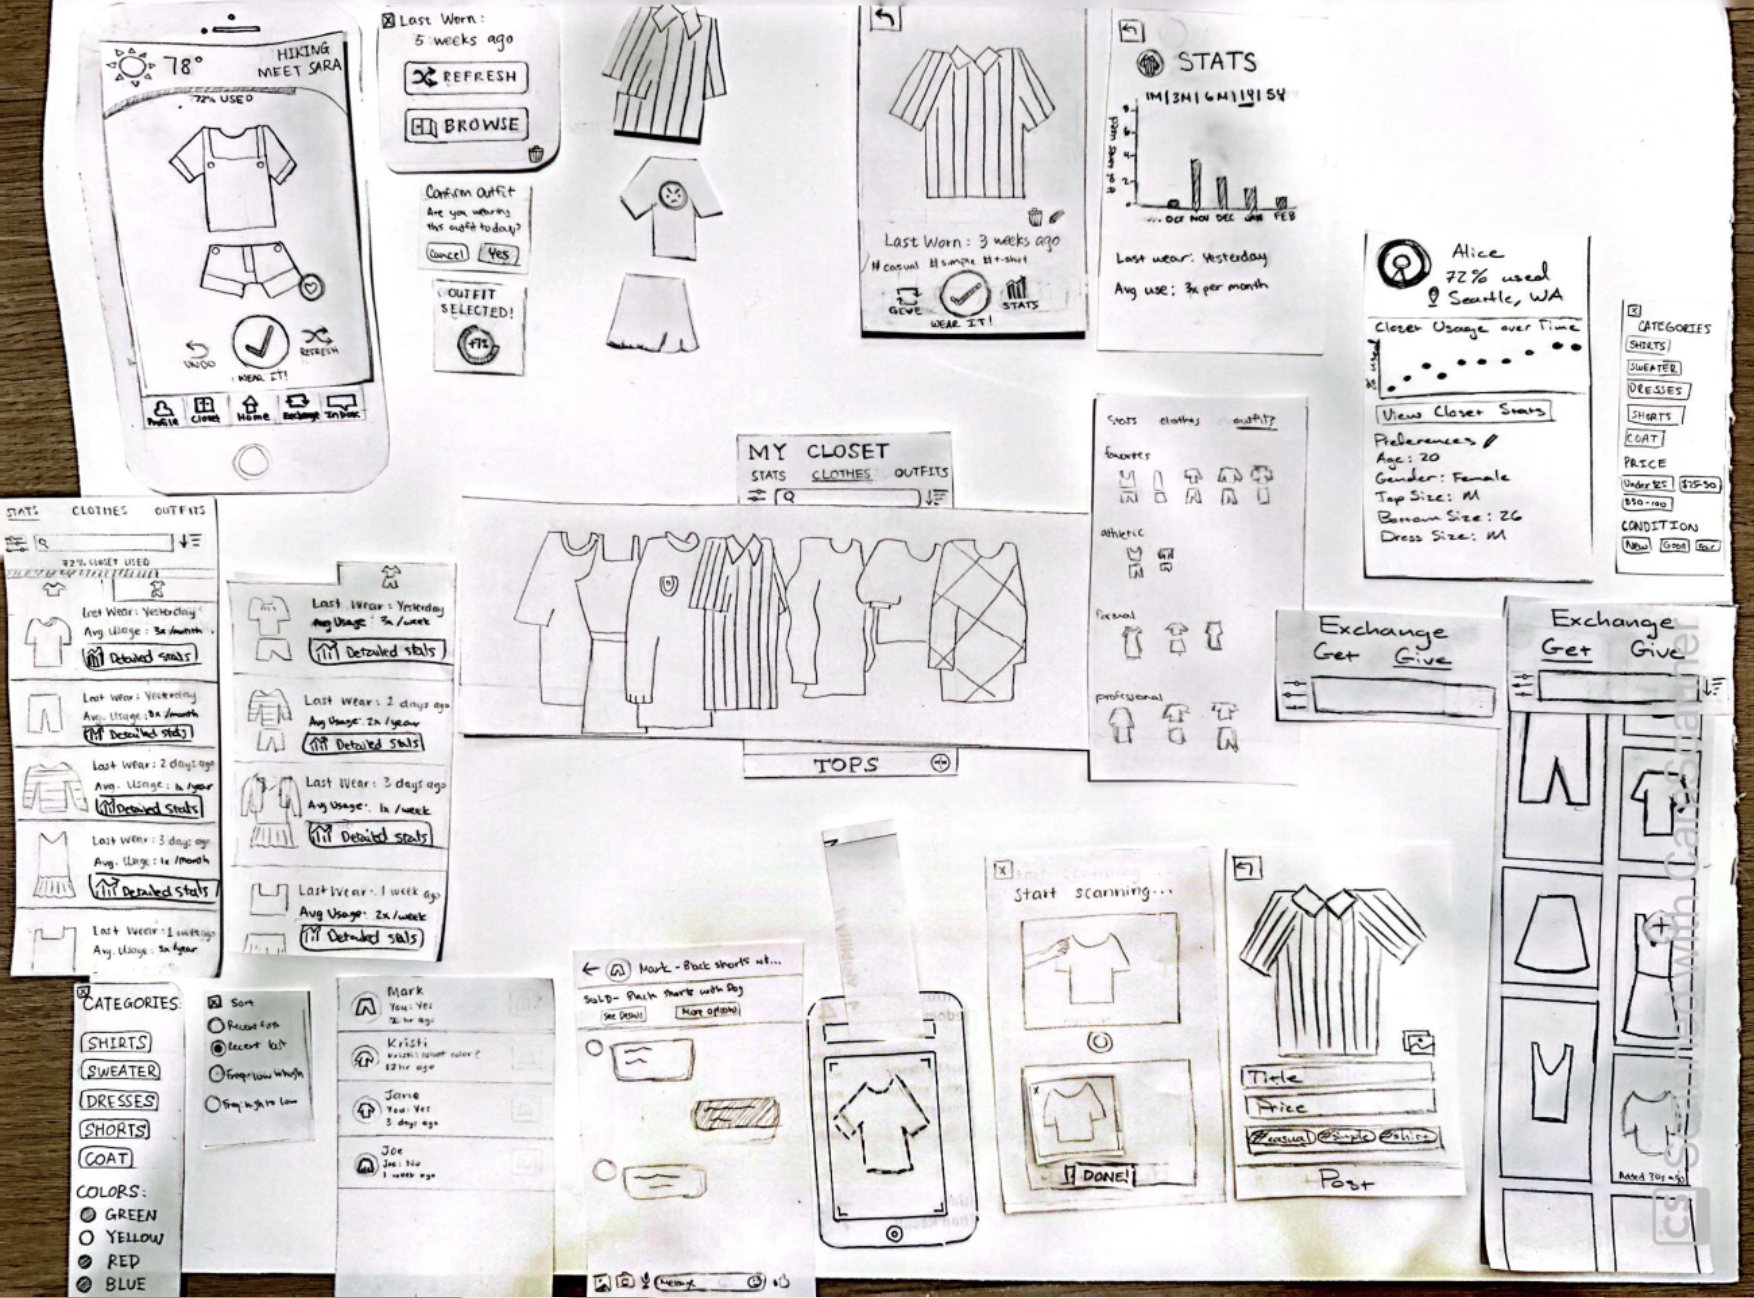 78°
HIKING
MEET SARA
72% USED
UNDO
WEAR IT!
REFRESH
Profile
Closet
Home
Exchange
Inbox
Last Worn:
5 weeks ago
REFRESH
BROWSE
Confirm Outfit
Are you wearing
this outfit today?
Cancel
Yes
OUTFIT
SELECTED!
+1%
Last Worn: 3 weeks ago
#casual #simple #t-shirt
GIVE
WEAR IT!
STATS
STATS
1M|3M|6M|1Y|5Y
8
6
4
2
0
... OCT NOV DEC JAN FEB
Last wear: Yesterday
Avg use: 3x per month
Alice
72% used
Seattle, WA
Closet Usage over Time
% used
View Closet Stats
Preferences
Age: 20
Gender: Female
Top Size: M
Bottom Size: 26
Dress Size: M
CATEGORIES
SHIRTS
SWEATER
DRESSES
SHORTS
COAT
PRICE
Under $25
$25-50
$50-100
CONDITION
New
Good
Fair
MY CLOSET
STATS CLOTHES OUTFITS
TOPS
Stats clothes outfits
favorites
athletic
formal
professional
STATS CLOTHES OUTFITS
72% CLOSET USED
Last Wear: Yesterday
Avg. Usage: 3x/month
Detailed Stats
Last Wear: Yesterday
Avg. Usage: 8x/month
Detailed Stats
Last Wear: 2 days ago
Avg. Usage: 1x/year
Detailed Stats
Last Wear: 3 days ago
Avg. Usage: 1x/month
Detailed Stats
Last Wear: 1 week ago
Avg. Usage: 3x/year
Last Wear: Yesterday
Avg Usage: 3x/week
Detailed Stats
Last Wear: 2 days ago
Avg Usage: 2x/year
Detailed Stats
Last Wear: 3 days ago
Avg Usage: 1x/week
Detailed Stats
Last Wear: 1 week ago
Avg Usage: 2x/week
Detailed Stats
Exchange
Get Give
Exchange
Get Give
Added 30s ago
CATEGORIES:
SHIRTS
SWEATER
DRESSES
SHORTS
COAT
COLORS:
GREEN
YELLOW
RED
BLUE
Sort
Recent first
Recent last
Freq: low to high
Freq: high to low
Mark
You: Yes
2 hr ago
Kristi
Kristi: What color?
12 hr ago
Jane
You: Yes
3 days ago
Joe
Joe: No
1 week ago
Mark - Black shorts wt...
SOLD - Black shorts with Dog
See Details
More options
Message
Start scanning...
DONE!
Title
Price
#casual #simple #shirt
Post
CS Scanned with CamScanner